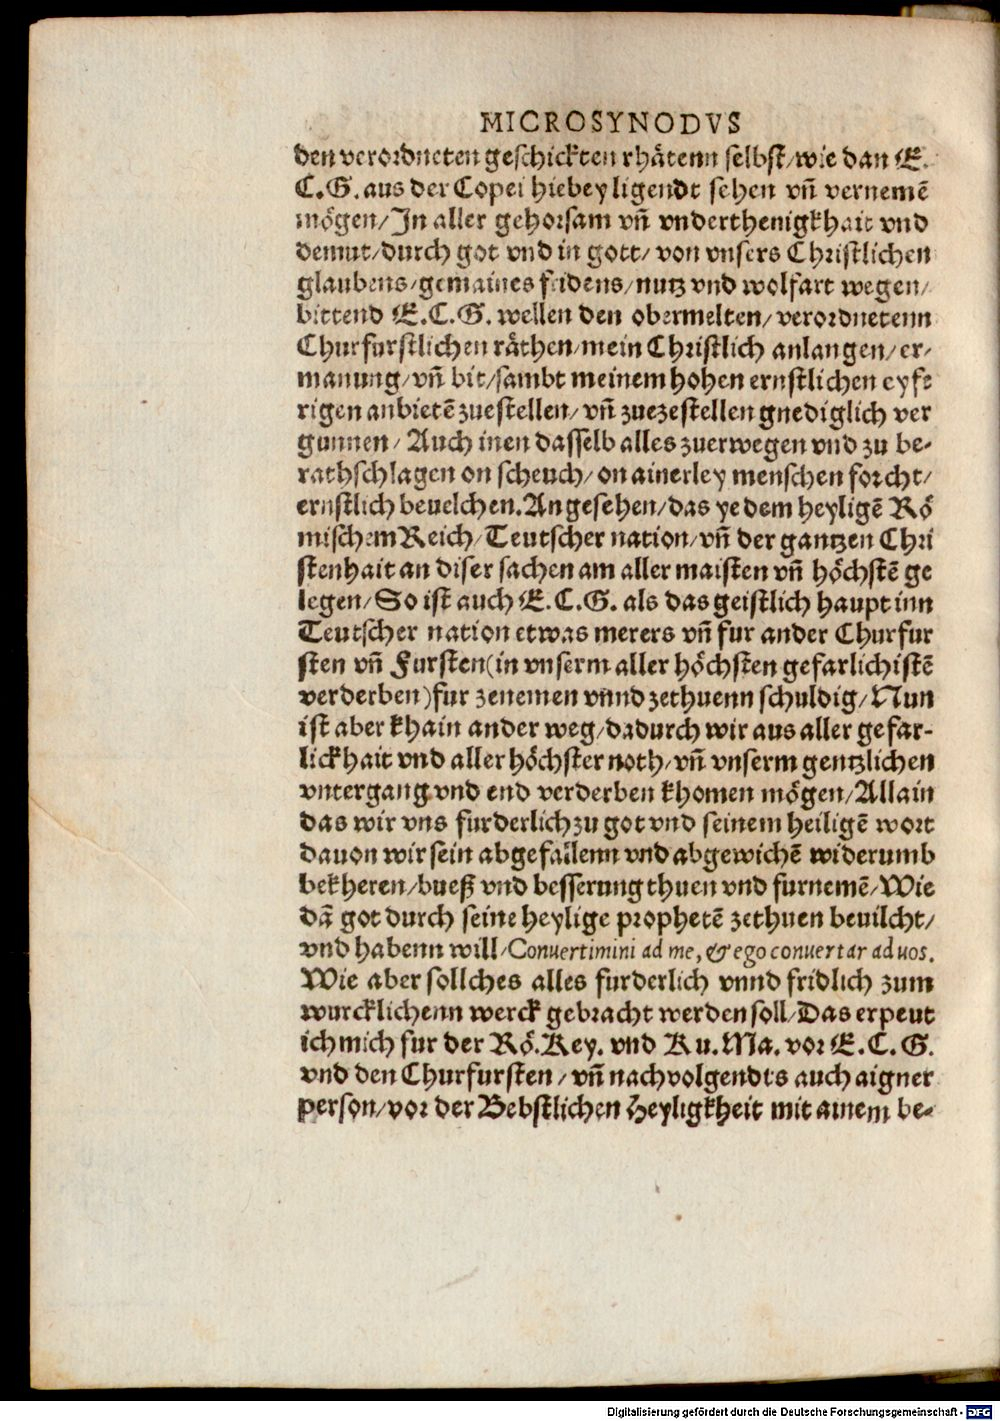 MICROSYNODVS
den verordneten geschickten rhätenn selbst/wie dan E.
C.G. aus der Copei hiebey ligendt sehen vñ vernemẽ
mögen/In aller gehorsam vñ vnderthenigkhait vnd
demut/durch got vnd in gott/ von vnsers Christlichen
glaubens/gemaines fridens/nutz vnd wolfart wegen/
bittend E.C.G. wellen den obermelten/verordnetenn
Churfurstlichen räthen/mein Christlich anlangen/er-
manung/vñ bit/sambt meinem hohen ernstlichen eyfe
rigen anbietẽ zuestellen/ vñ zuezestellen gnediglich ver
gunnen/ Auch inen dasselb alles zuerwegen vnd zu be-
rathschlagen on scheuch/on ainerley menschen forcht/
ernstlich beuelchen. Angesehen/das ye dem heyligẽ Rö
mischem Reich/Teutscher nation/vñ der gantzen Chri
stenhait an diser sachen am aller maisten vñ höchstẽ ge
legen/So ist auch E.C.G. als das geistlich haupt inn
Teutscher nation etwas merers vñ fur ander Churfur
sten vñ Fursten(in vnserm aller höchsten gefarlichistẽ
verderben)fur zenemen vnnd zethuenn schuldig/Nun
ist aber khain ander weg/dadurch wir aus aller gefar-
lickhait vnd aller höchster noth/vñ vnserm gentzlichen
vntergang vnd end verderben khomen mögen/Allain
das wir vns furderlich zu got vnd seinem heiligẽ wort
dauon wir sein abgefallenn vnd abgewichẽ widerumb
bekheren/bueß vnd besserung thuen vnd furnemẽ/Wie
dã got durch seine heylige prophetẽ zethuen beuilcht/
vnd habenn will/Conuertimini ad me, & ego conuertar ad uos.
Wie aber sollches alles furderlich vnnd fridlich zum
wurcklichenn werck gebracht werden soll/Das erpeut
ich mich fur der Rö.Key. vnd Ku.Ma. vor E.C.G.
vnd den Churfursten/vñ nachvolgendts auch aigner
person/vor der Bebstlichen Heyligkheit mit ainem be-
Digitalisierung gefördert durch die Deutsche Forschungsgemeinschaft - DFG